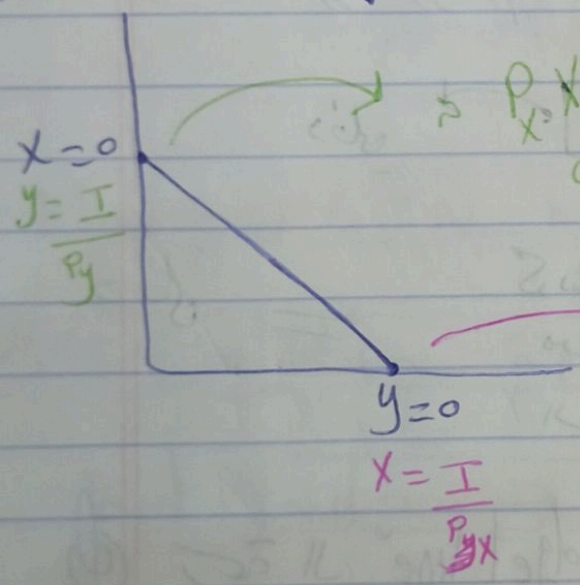 P_x X
x = 0
y = I / Py
y = 0
x = I / Px